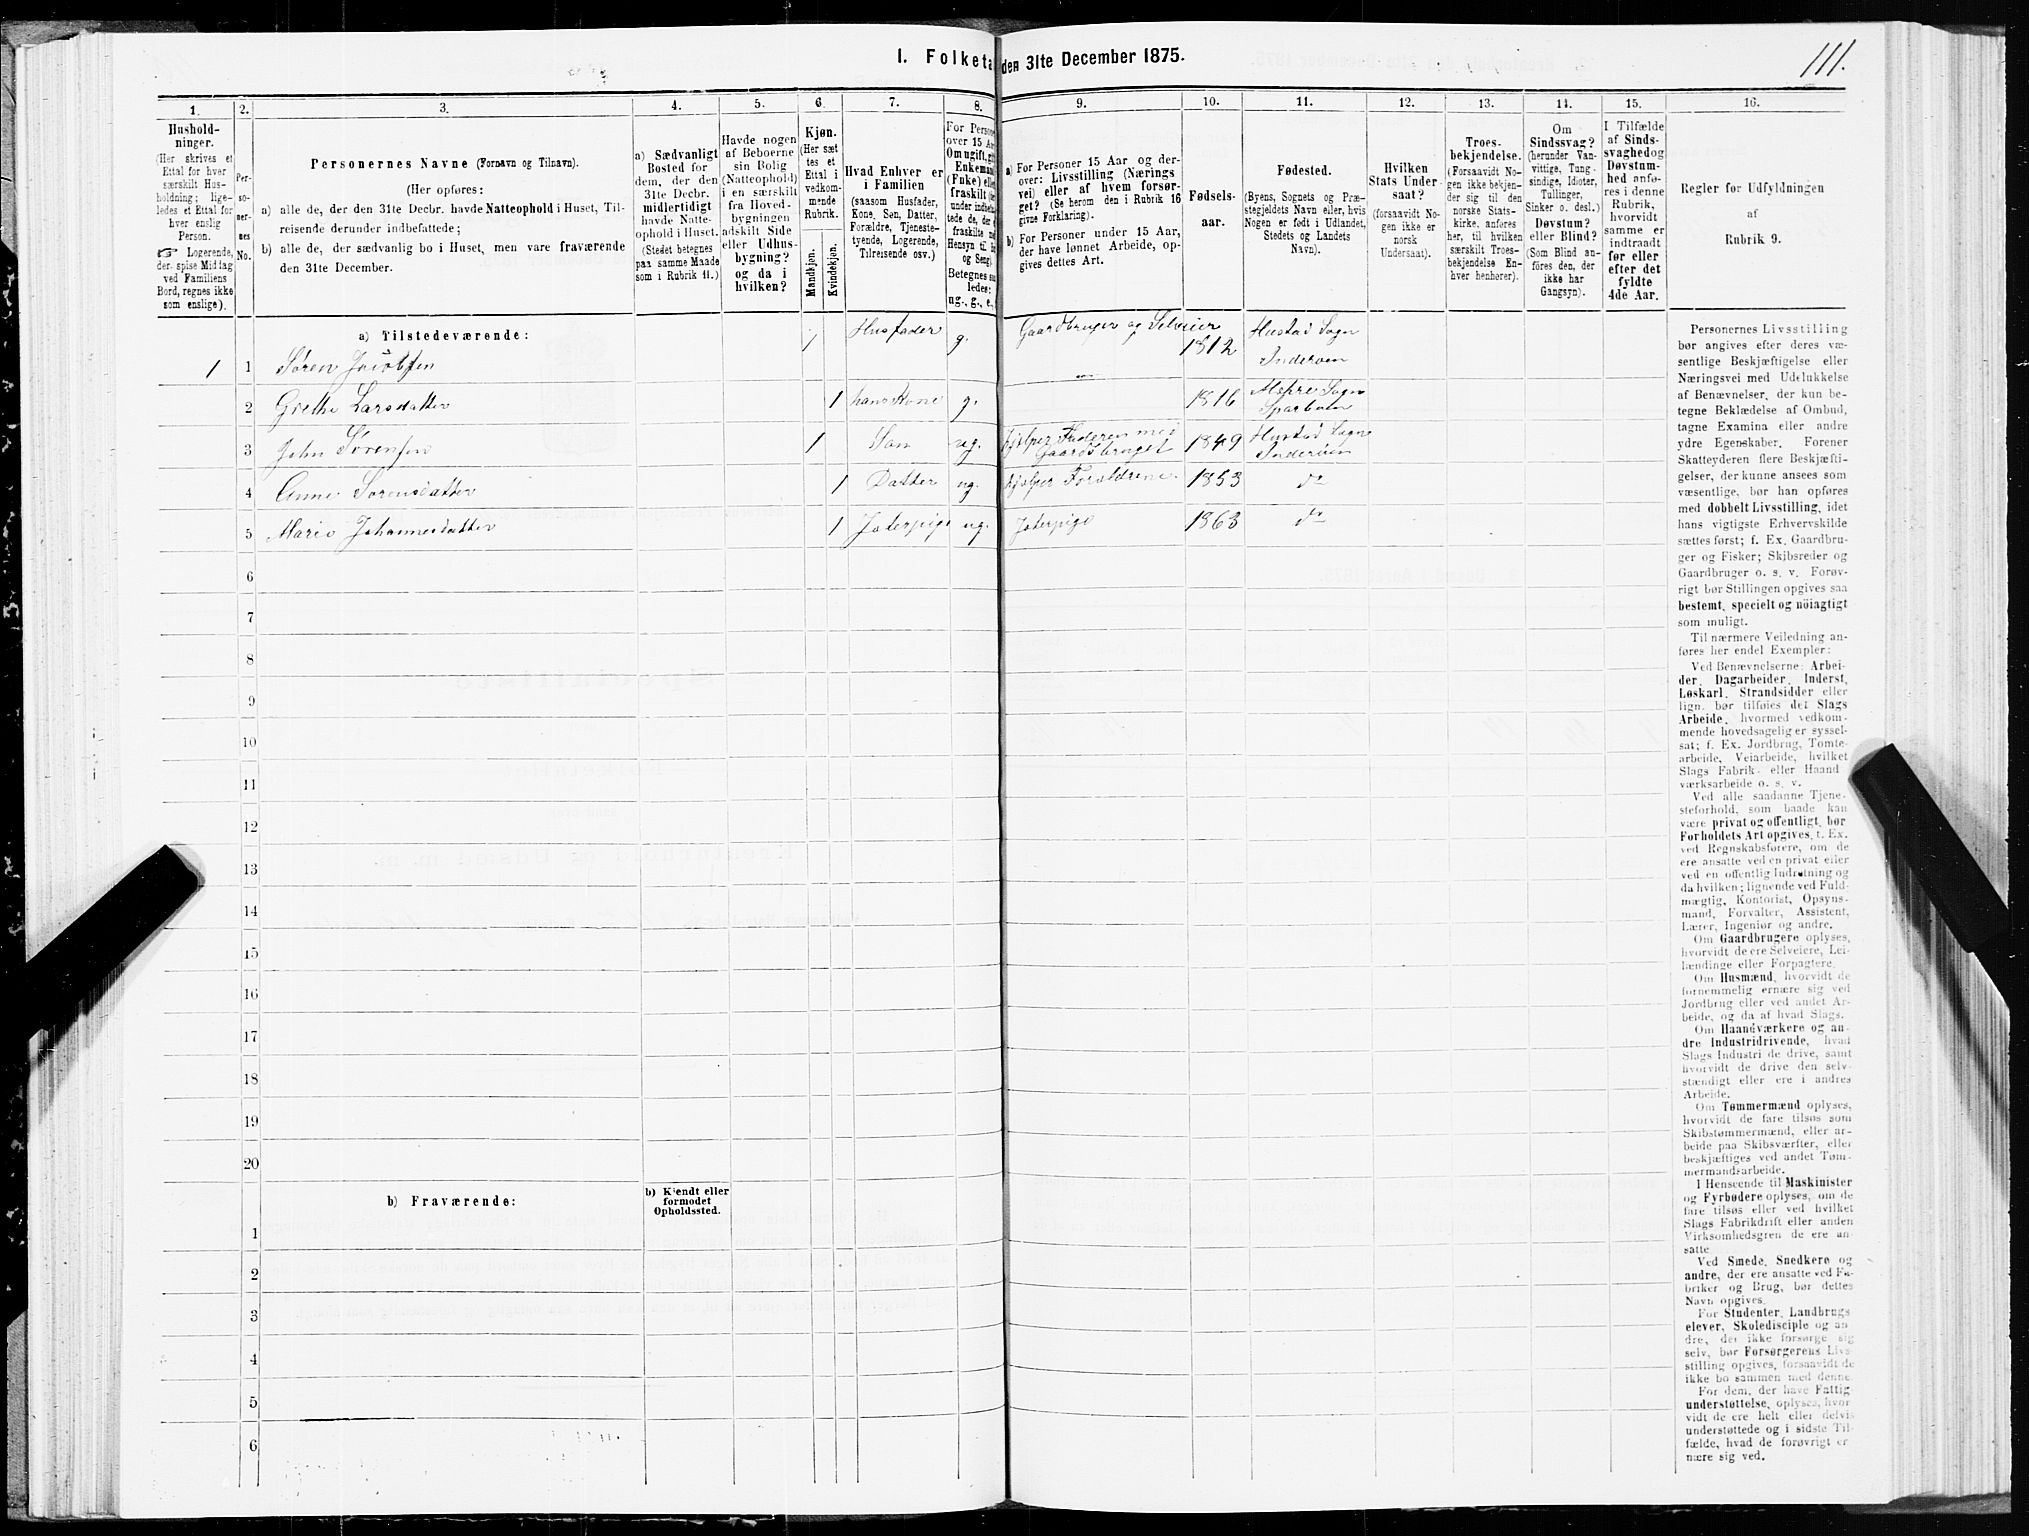 I. Folketa den 31te December 1875.
111.
1.
Hushold-
ninger.
(Her skrives et
Ettal for hver
særskilt Hus-
holdning; lige-
ledes et Ettal for
hver enslig
Person.
☞ Logerende,
der spise Middag
ved Familiens
Bord, regnes ikke
som enslige).
2.
Per-
so-
ner-
nes
No.
3.
Personernes Navne (Fornavn og Tilnavn).
(Her opføres:
a) alle de, der den 31te Decbr. havde Natteophold i Huset, Til-
reisende derunder indbefattede;
b) alle de, der sædvanlig bo i Huset, men vare fraværende
den 31te December.
4.
a) Sædvanligt
Bosted for
dem, der den
31te Decbr.
midlertidigt
havde Natte-
ophold i Huset.
(Stedet betegnes
paa samme Maade
som i Rubrik 11.)
5.
Havde nogen
af Beboerne
sin Bolig
(Natteophold)
i en særskilt
fra Hoved-
bygningen
adskilt Side
eller Udhus-
bygning?
og da i
hvilken?
6.
Kjøn.
(Her sæt
tes et
Ettal i
vedkom-
mende
Rubrik.
Mandkjøn.
Kvindekjøn.
7.
Hvad Enhver er
i Familien
(saasom Husfader,
Kone, Søn, Datter,
Forældre, Tjeneste-
tyende, Logerende,
Tilreisende osv.)
8.
For Persone
over 15 Aa
Om ugift, gif
Enkeman
(Enke) elle
fraskilt
Betegnes saa
ledes:
ug., g., e.,
9.
a) For Personer 15 Aar og der-
over: Livsstilling (Nærings
vei) eller af hvem forsør-
get? (Se herom den i Rubrik 16
givne Forklaring).
b) For Personer under 15 Aar,
der have lønnet Arbeide, op-
gives dettes Art.
10.
Fødsels-
aar.
11.
Fødested.
(Byens, Sognets og Præ-
stegjeldets Navn eller, hvis
Nogen er født i Udlandet,
Stedets og Landets
Navn).
12.
Hvilken
Stats Under
saat?
(forsaavidt No-
gen ikke er
norsk
Undersaat).
13.
Troes-
bekjendelse.
(Forsaavidt No-
gen ikke bekjen-
der sig til den
norske Stats-
kirke, anføres
her, til hvilken
særskilt Troes-
bekjendelse En-
hver henhører).
14.
Om
Sindssvag?
(herunder Van-
vittige, Tung-
sindige, Idioter,
Tullinger,
Sinker o. desl.)
Døvstum?
eller Blind?
(Som Blind an-
føres den, der
ikke har
Gangsyn).
15.
I Tilfælde
af Sinds-
svaghed og
Døvstum-
hed anfø-
res i denne
Rubrik,
hvorvidt
samme er
indtraadt
før eller
efter det
fyldte
4de Aar.
16.
Regler før Udfyldningen
af
Rubrik 9.
a) Tilstedeværende:
1 1 Søren Jacobsen 1 Husfader g. Gaardbruger og Selveier 1812 Hustad Sogn
Inderøen
2 Grethe Larsdatter 1 hans Kone g. 1816 Sogn
Sparbuen
3 John Sørensen 1 Søn ug. hjelper Faderen med
Gaardsbruget 1849 Hustad Sogn
Inderøen
4 Anne Sørensdatter 1 Datter ug. hjelper Forældrene 1853 do
5 Marie Johannesdatter 1 Jeterpige ug. Jeterpige 1863 do
6
7
8
9
10
11
12
13
14
15
16
17
18
19
20
b) Fraværende:
b) Kjendt eller
formodet
Opholdssted.
1
2
3
4
5
6
Personernes Livsstilling
bør angives efter deres væ-
sentlige Beskjæftigelse eller
Næringsvei med Udelukkelse
af Benævnelser, der kun be-
tegne Beklædelse af Ombud,
tagne Examina eller andre
ydre Egenskaber. Forener
Skatteyderen flere Beskjæfti-
gelser, der kunne ansees som
væsentlige, bør han opføres
med dobbelt Livsstilling, idet
hans vigtigste Erhvervskilde
sættes først; f. Ex. Gaardbru-
ger og Fisker; Skibsreder og
Gaardbruger o. s. v. Forøv-
rigt bør Stillingen opgives saa
bestemt, specielt og nöiagtigt
som muligt.
Til nærmere Veiledning an-
føres her endel Exempler:
Ved Benævnelserne: Arbei-
der, Dagarbeider, Inderst,
Løskarl, Strandsidder eller
lign. bør tilføies det Slags
Arbeide, hvormed vedkom-
mende hovedsagelig er syssel-
sat; f. Ex. Jordbrug, Tomte-
arbeide, Veiarbeide, hvilket
Slags Fabrik- eller Haand
værksarbeide o. s. v.
Ved alle saadanne Tjene-
steforhold, som baade kan
være privat og offentligt, bør
Forholdets Art opgives, t. Ex.
ved Regnskabsførere, om de
ere ansatte ved en privat eller
ved en offentlig Indretning og
da hvilken; lignende ved Fuld-
mægtig, Kontorist, Opsyns-
mand, Forvalter, Assistent,
Lærer, Ingeniør og andre.
Om Gaardbrugere oplyses,
hvorvidt de ere Selveiere, Lei-
lændinge eller Forpagtere.
Om Husmænd, hvorvidt de
fornemmelig ernære sig ved
Jordbrug eller ved andet Ar-
beide, og da af hvad Slags.
Om Haandværkere og an-
dre Industridrivende, hvad
Slags Industri de drive, samt
hvorvidt de drive den selv-
stændigt eller ere i andres
Arbeide.
Om Tømmermænd oplyses,
hvorvidt de fare tilsøs som
Skibstømmermænd, eller ar-
beide paa Skibsværfter, eller
beskjæftiges ved andet Tøm-
mermandsarbeide.
I Henseende til Maskinister
og Fyrbødere oplyses, om de
fare tilsøs eller ved hvilket
Slags Fabrikdrift eller anden
Virksomhedsgren de ere an-
satte
Ved Smede, Snedkere og
andre, der ere ansatte ved Fa-
briker og Brug, bør dettes
Navn opgives.
For Studenter, Landbrugs
elever, Skoledisciple og an
dre, der ikke forsørge sig
selv, bør Forsørgerens Livs-
stilling opgives, forsaavidt de
ikke bo sammen med denne.
For dem, der have Fattig
understøttelse, oplyses, hvor
vidt de ere helt eller delvis
understøttede og i sidste Til-
fælde, hvad de forøvrigt er
nære sig ved.